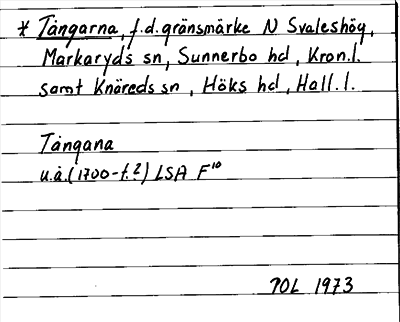 * Tångarna, f.d. gränsmärke N Svaleshög,
Markaryds sn, Sunnerbo hd, Kron.l.
samt Knäreds sn, Höks hd, Hall.l.
Tångana
u.å. (1700-t.?) LSA F¹⁰
POL 1973